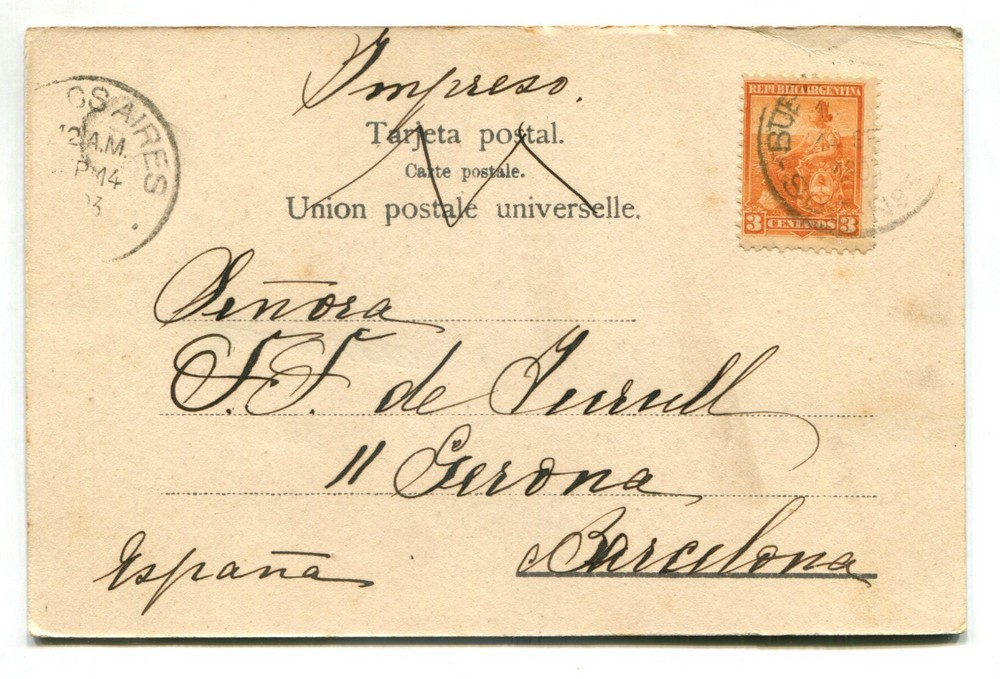 Impreso.
Tarjeta postal.
Carte postale.
Union postale universelle.
OS AIRES
12 A.M.
14
REPUBLICA ARGENTINA
3 CENTAVOS 3
BUE
Señora
F. F. de
11 Gerona
Barcelona
España